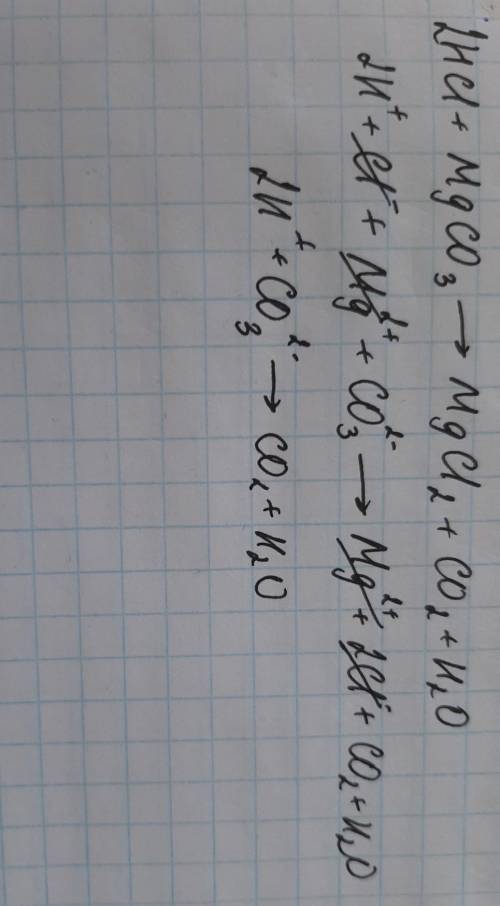 2HCl + MgCO₃ → MgCl₂ + CO₂ + H₂O
2H⁺ + Cl⁻ + Mg²⁺ + CO₃²⁻ → Mg²⁺ + 2Cl⁻ + CO₂ + H₂O
2H⁺ + CO₃²⁻ → CO₂ + H₂O